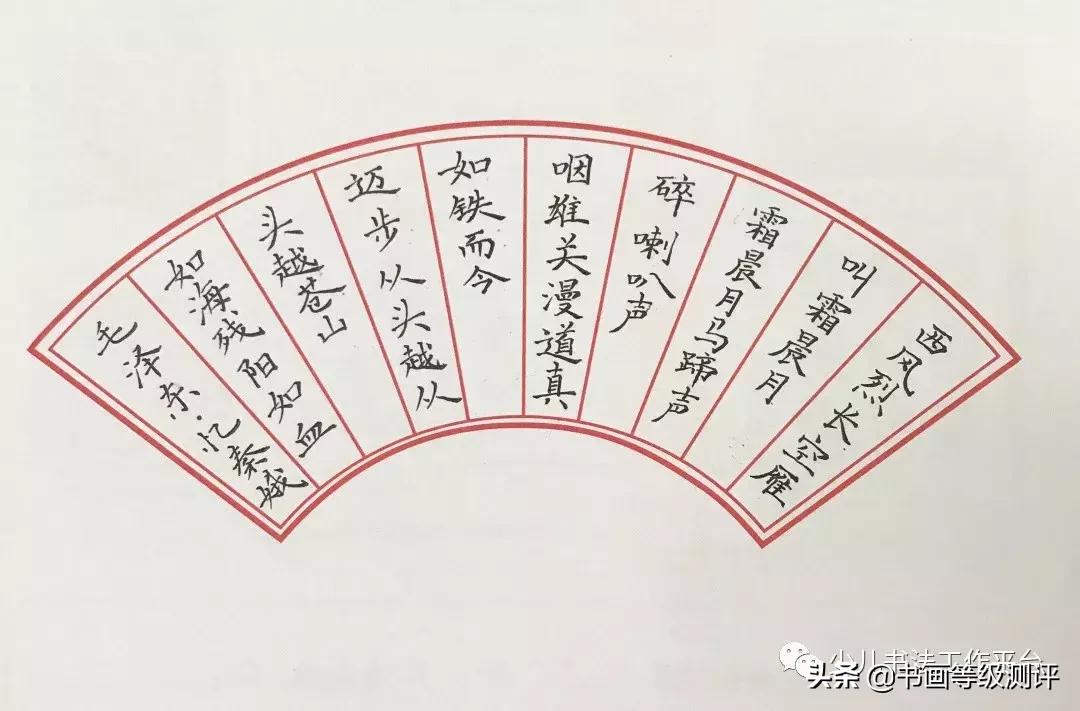 西风烈长空雁
叫霜晨月
霜晨月马蹄声
碎喇叭声
咽雄关漫道真
如铁而今
迈步从头越从
头越苍山
如海残阳如血
毛泽东·忆秦娥
少儿书法工作平台
头条@书画等级测评